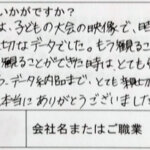 いかがですか？
は、子どもの大会の映像で、
切なデータでした。もう観ること
観ることができた時はとても
ら、データ納品まで、とても親切
本当にありがとうございました
会社名またはご職業